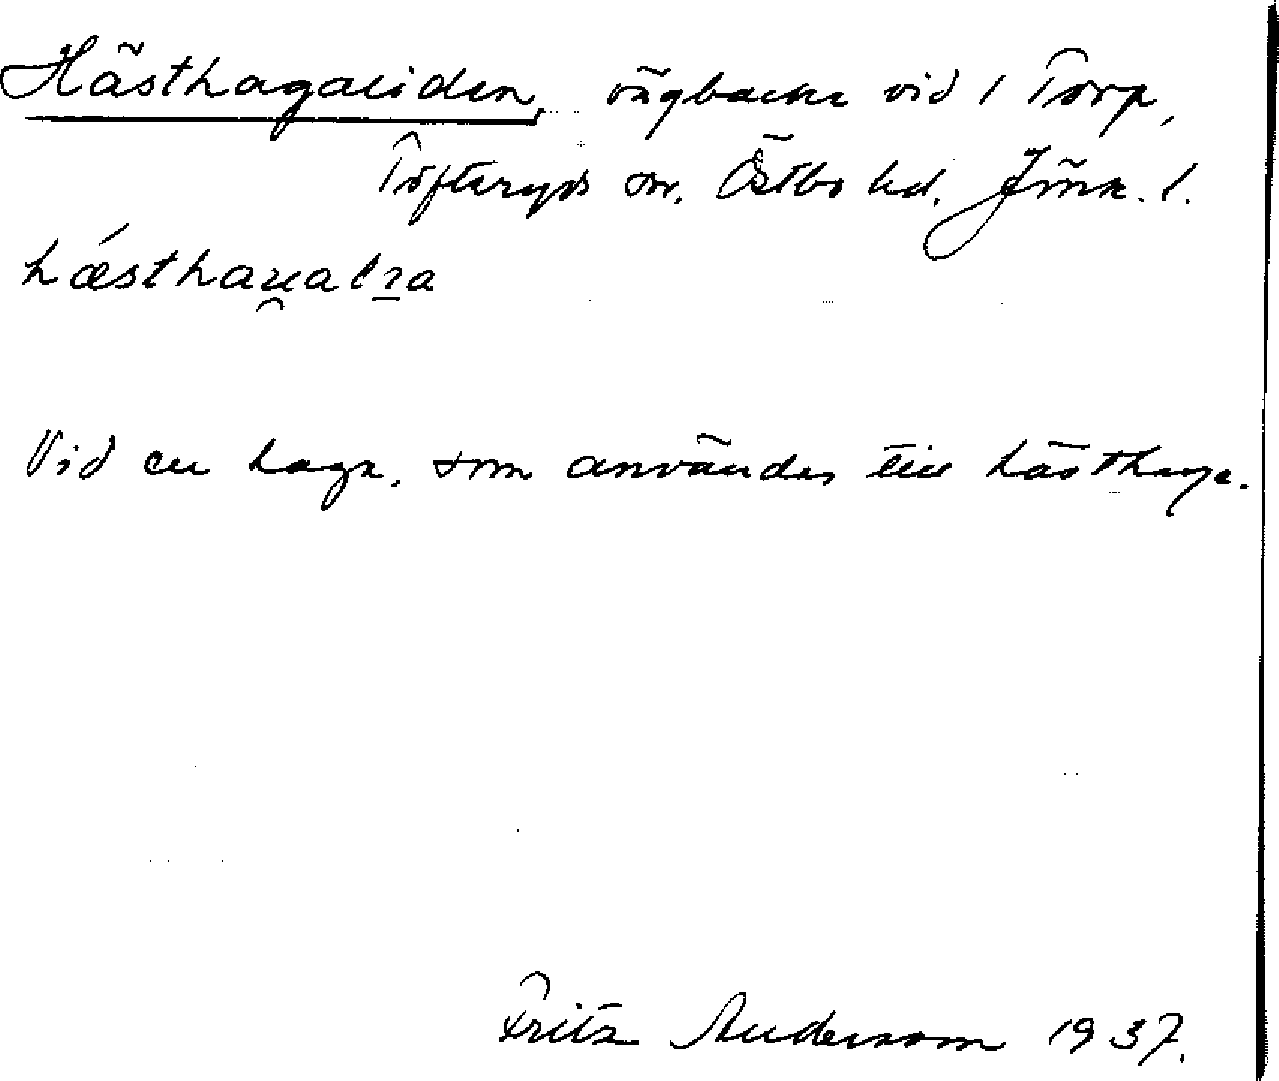 Hästhagaliden, vägbacke vid 1 Torp,
Tofteryds sn. Östbo hd. Jönk. l.
Vid en hage, som användes till hästhage.
Fritz Andersson 1937.